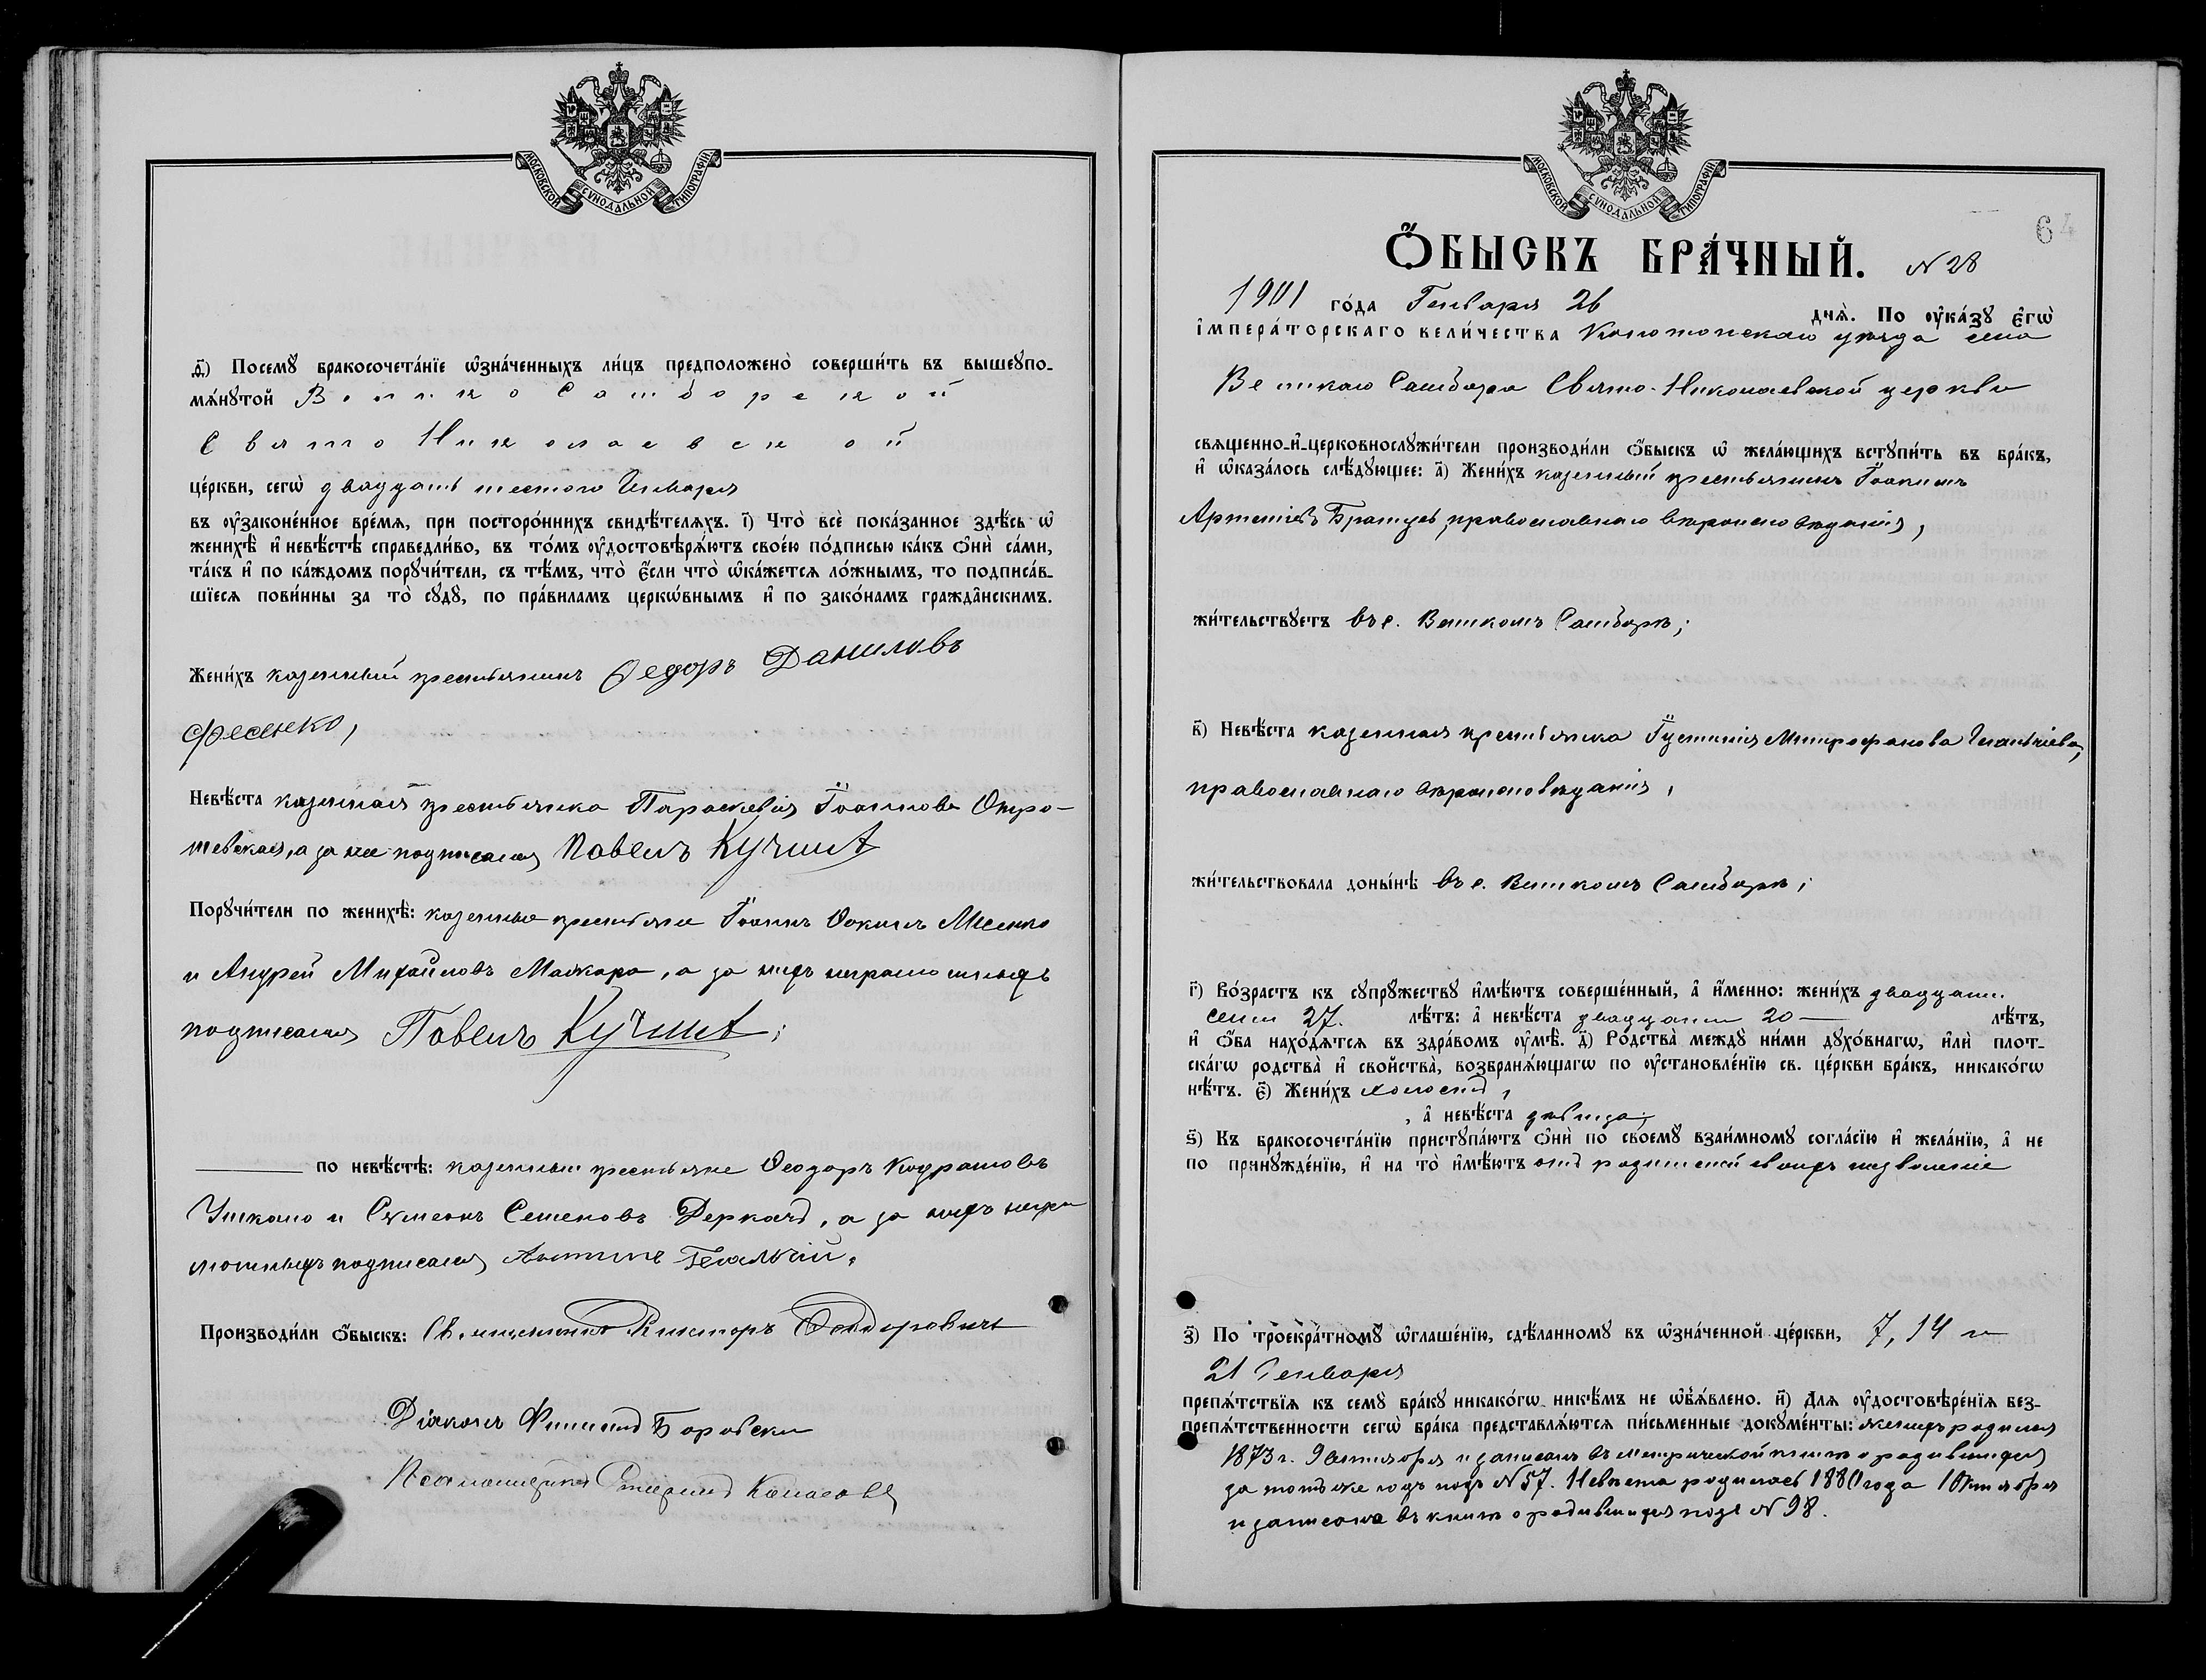 МОСКОВСКОЙ СѴНОДАЛЬНОЙ ТИПОГРАФІИ
д҃) Посемꙋ бракосочета́нїе ѡ҆зна́ченныхъ ли́цъ предположено̀ соверши́ть въ вышеꙋпо-
мѧ́нꙋтой Велико Самборской
Свято Николаевской
це́ркви, сегѡ̀ двадцать шестого Генваря
въ ᲂу҆законе́нное вре́мѧ, при посторо́ннихъ свидѣ́телѧхъ. і҃) Что̀ всѐ пока́занное здѣ́сь ѡ҆
женихѣ̀ и҆ невѣ́стѣ справедли́во, въ то́мъ ᲂу҆достовѣрѧ́ютъ свое́ю по́дписью ка́къ ѻ҆нѝ са́ми,
та́къ и҆ по ка́ждомъ порꙋчи́тели, съ тѣ́мъ, что̀ є҆́сли что̀ ѡ҆ка́жетсѧ ло́жнымъ, то подписа́в-
шїесѧ пови́нны за то̀ сꙋдꙋ̀, по пра́виламъ церко́внымъ и҆ по зако́намъ гражда̂нскимъ.
Жени́хъ казенный крестьянинъ Федоръ Даниловъ
Фесенко,
Невѣ́ста казенная крестьянка Параскевія Іоаннова Отро-
шевская, а за нее подписался Павелъ Кучма
Порꙋчи́тели по женихѣ̀: казенные крестьяне Іоаннъ Фокинъ
и Андрей Михайловъ Мажара, а за нихъ неграмотныхъ
подписался Павелъ Кучма;
по невѣ́стѣ: казенные крестьяне Ѳеодоръ Кодратовъ
и Сѵмеонъ Семеновъ Деркачъ, а за нихъ негра
мотныхъ подписался Антипъ
Производи́ли ѻ҆́быскъ: Священникъ Викторъ
Діаконъ Филиппъ Боровски
Псаломщикъ
МОСКОВСКОЙ СѴНОДАЛЬНОЙ ТИПОГРАФІИ
64
Ѻ҆́БЫСКЪ БРА́ЧНЫЙ. N 28
1901 го́да Генваря 26 днѧ̀. По ᲂу҆ка́зꙋ є҆гѡ̀
і҆мпера́торскаго вели́чества Конотопскаго уѣзда села
Великаго Самбора Свято-Николаевской церкви
свѧщенно-и҆-церковнослꙋжи́тели производи́ли ѻ҆́быскъ ѡ҆ жела́ющихъ встꙋпи́ть въ бра́къ,
и҆ ѡ҆каза́лось слѣ́дꙋющее: а҃) Жени́хъ казенный крестьянинъ Іоакимъ
Артеміевъ Братусь, православнаго вѣроисповѣданія,
жи́тельствꙋетъ въ с. Великомъ Самборѣ;
в҃) Невѣ́ста казенная крестьянка Іустинія Митрофанова
православнаго вѣроисповѣданія,
жи́тельствовала доны́нѣ въ с. Великомъ Самборѣ;
г҃) Во́зрастъ къ сꙋпрꙋ́жествꙋ и҆мѣ́ютъ соверше́нный, а҆ и҆́менно: жени́хъ двадцати
семи 27. лѣ́тъ: а҆ невѣ́ста двадцати 20 — лѣ́тъ,
и҆ ѻ҆́ба нахо́дѧтсѧ въ здра́вомъ ᲂу҆мѣ̀. д҃) Родства̀ междꙋ̀ ни́ми дꙋхо́внагѡ, и҆лѝ плот-
ска́гѡ родства̀ и҆ свойства̀, возбранѧ́ющагѡ по ᲂу҆становле́нїю св. це́ркви бра́къ, никако́гѡ
нѣ́тъ. є҃) Жени́хъ холостъ,
, а҆ невѣ́ста дѣвица;
ѕ҃) Къ бракосочета́нїю пристꙋпа́ютъ ѻ҆нѝ по своемꙋ̀ взаи́мномꙋ согла́сїю и҆ жела́нїю, а҆ не
по принꙋжде́нїю, и҆ на то̀ и҆мѣ́ютъ отъ родителей своихъ позволеніе
з҃) По троекра́тномꙋ ѡ҆глаше́нїю, сдѣ́ланномꙋ въ ѡ҆зна́ченной це́ркви, 7, 14 и
21 Генваря
препѧ́тствїѧ къ семꙋ̀ бра́кꙋ никако́гѡ никѣ́мъ не ѡ҆б̾ѧ́влено. и҃) Длѧ ᲂу҆достовѣре́нїѧ без-
препѧ́тственности сегѡ̀ бра́ка представлѧ́ютсѧ пи́сьменные докꙋме́нты: женихъ родился
1873 г. 9 Сентября и записанъ въ метрической книгѣ о родившихся
за тотъ же годъ подъ N 57. Невѣста родилась 1880 года 1 Октября
и записана въ книгѣ о родившихся подъ N 98.